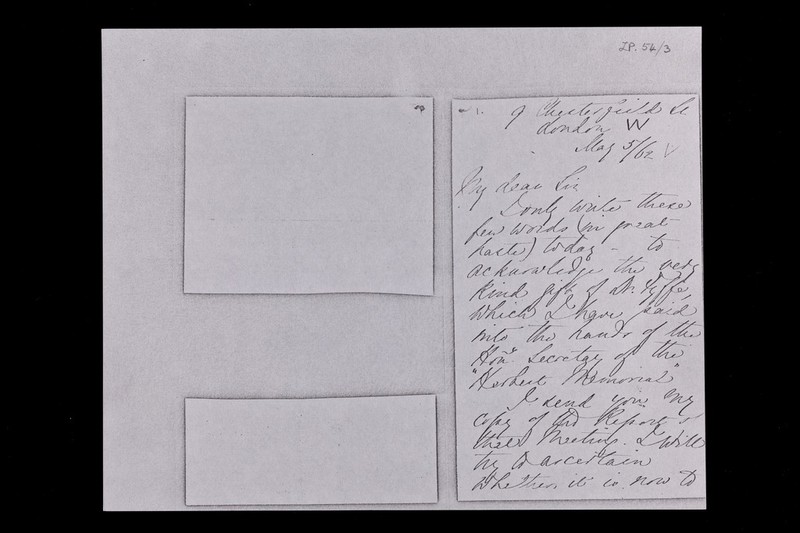 ZP. 54/3
1. 9 Chesterfield St
London W
May 5/62
My dear Sir
I only write these
few words (in great
haste) today - to
acknowledge the very
kind gift of Dr. Fyffe,
which I have paid
into the hands of the
Hony. Secretary of the
"Herbert Memorial"
I send you my
copy of the Report of
their Meeting. I will
try to ascertain
whether it is now to